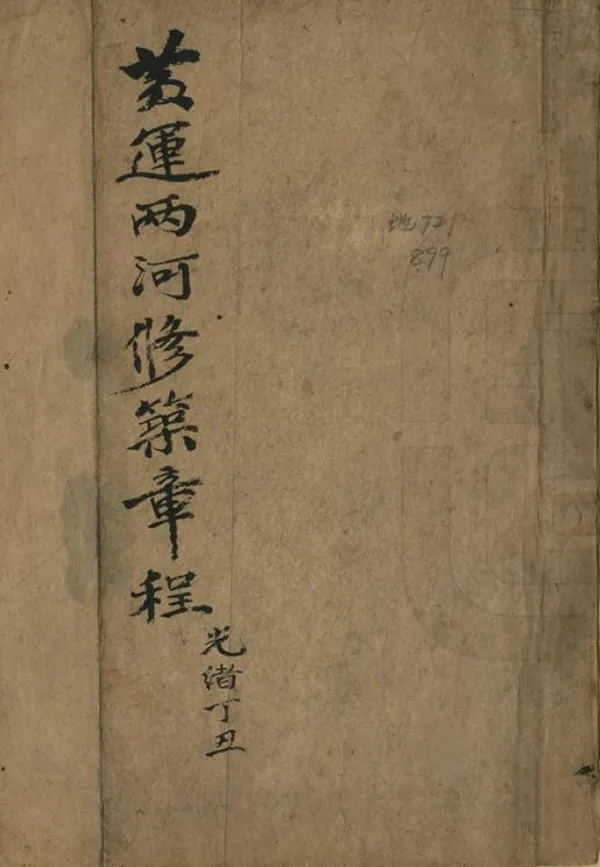 黃運两河修築章程
光緒丁丑
地721
899